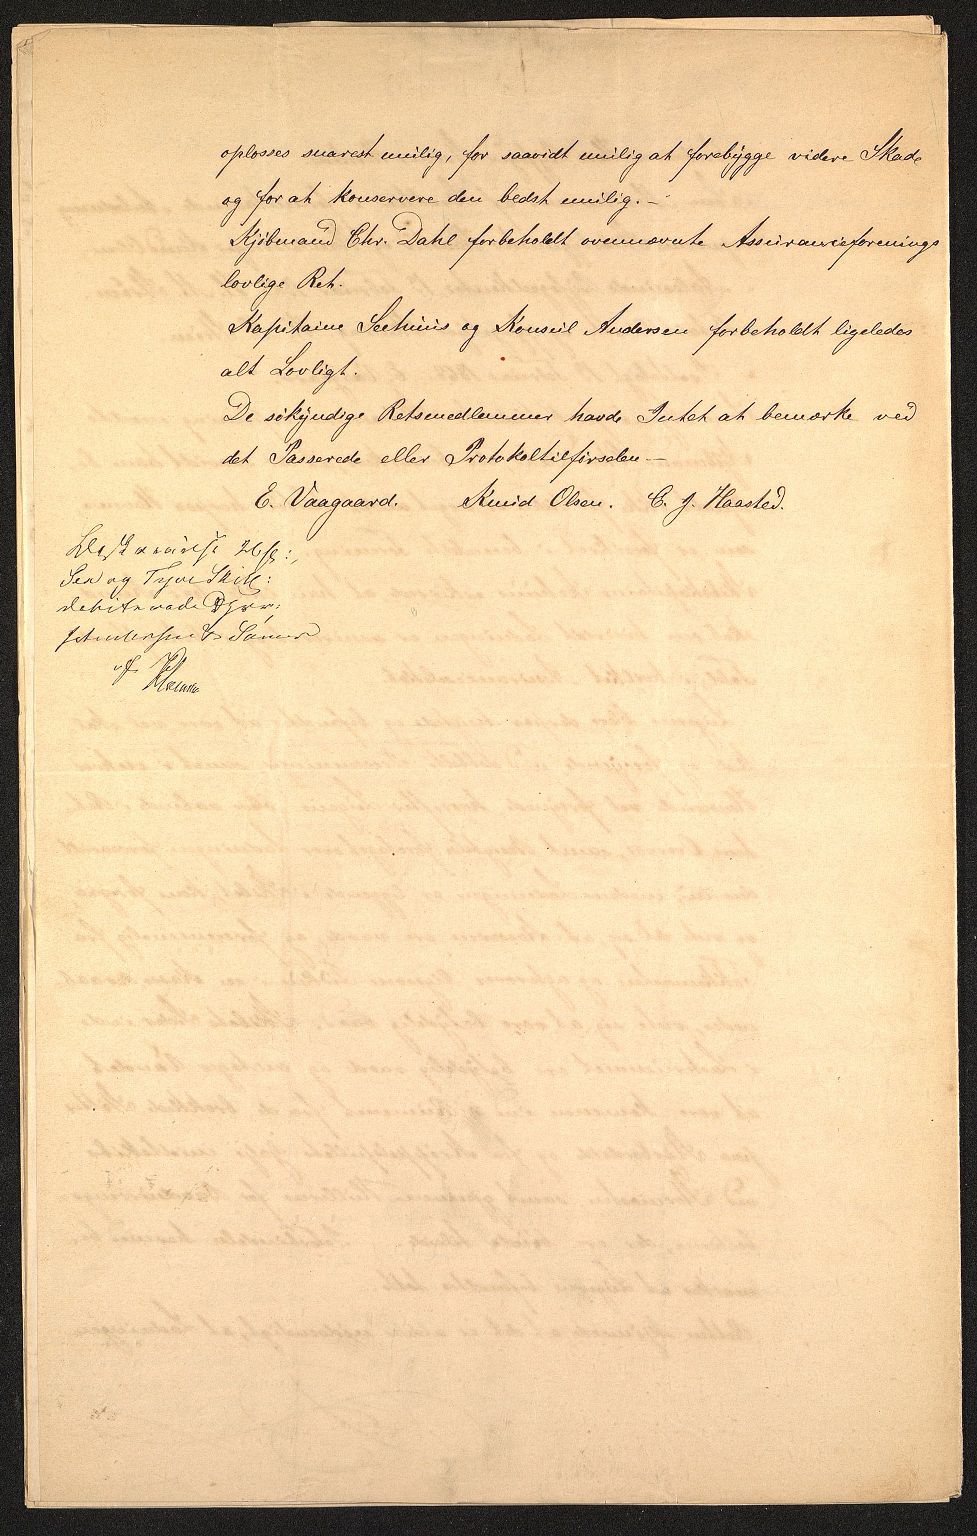 oplosses snarest mulig, for saavidt mulig at forebygge videre Skade
og for at konservere den bedst mulig. –
Kjøbmand Chr. Dahl forbeholdt ovennævnte Assuranceforenings
lovlige Ret.
Kapitaine Seehuus og Konsul Andersen forbeholdt ligeledes
alt Lovligt.
De søkyndige Retsmedlemmer havde Intet at bemærke ved
det Passerede eller Protokoltilførselen –
E. Vaagaard. Knud Olsen. C. J. Haasted.
26 ſz:
Sex og Tyve Skill:
debiterede D'Herr:
Andersen & Sønner